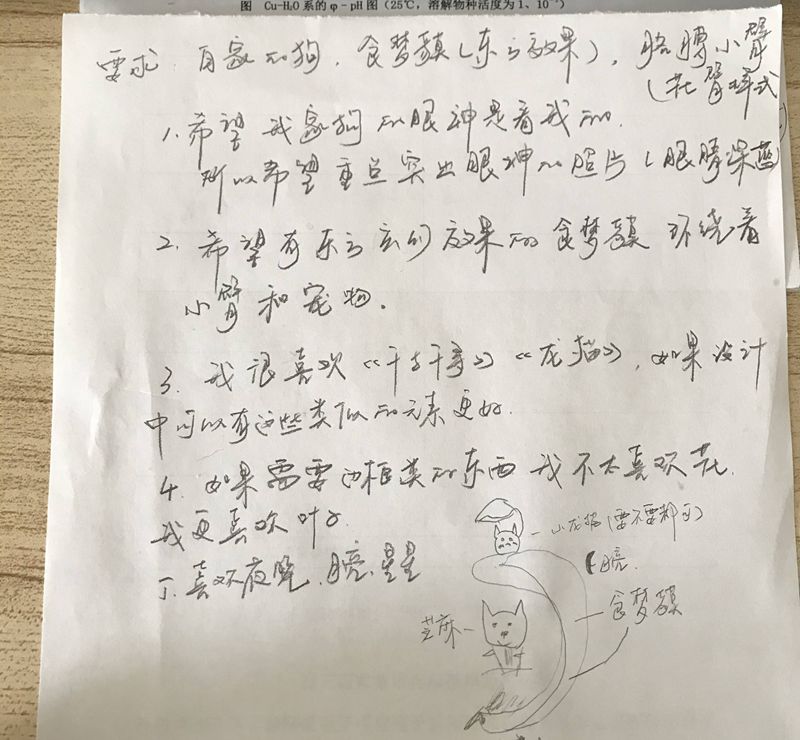 图 Cu-H₂O 系的 φ-pH 图 (25℃, 溶解物种活度为 1、10
要求: 自家的狗, 食梦貘(东方效果), 胳膊小臂
(花臂样式
1. 希望我家狗的眼神是看我的.
所以希望重点突出眼神的照片(眼睛深蓝
2. 希望有东方玄幻效果的食梦貘 环绕着
小臂和宠物.
3. 我很喜欢《千与千寻》《龙猫》, 如果设计
中可以有这些类似的元素更好.
4. 如果需要边框类的东西 我不太喜欢花.
我更喜欢叶子
5. 喜欢夜晚、月亮、星星
小龙猫(要不要都可)
月亮.
芝麻
食梦貘